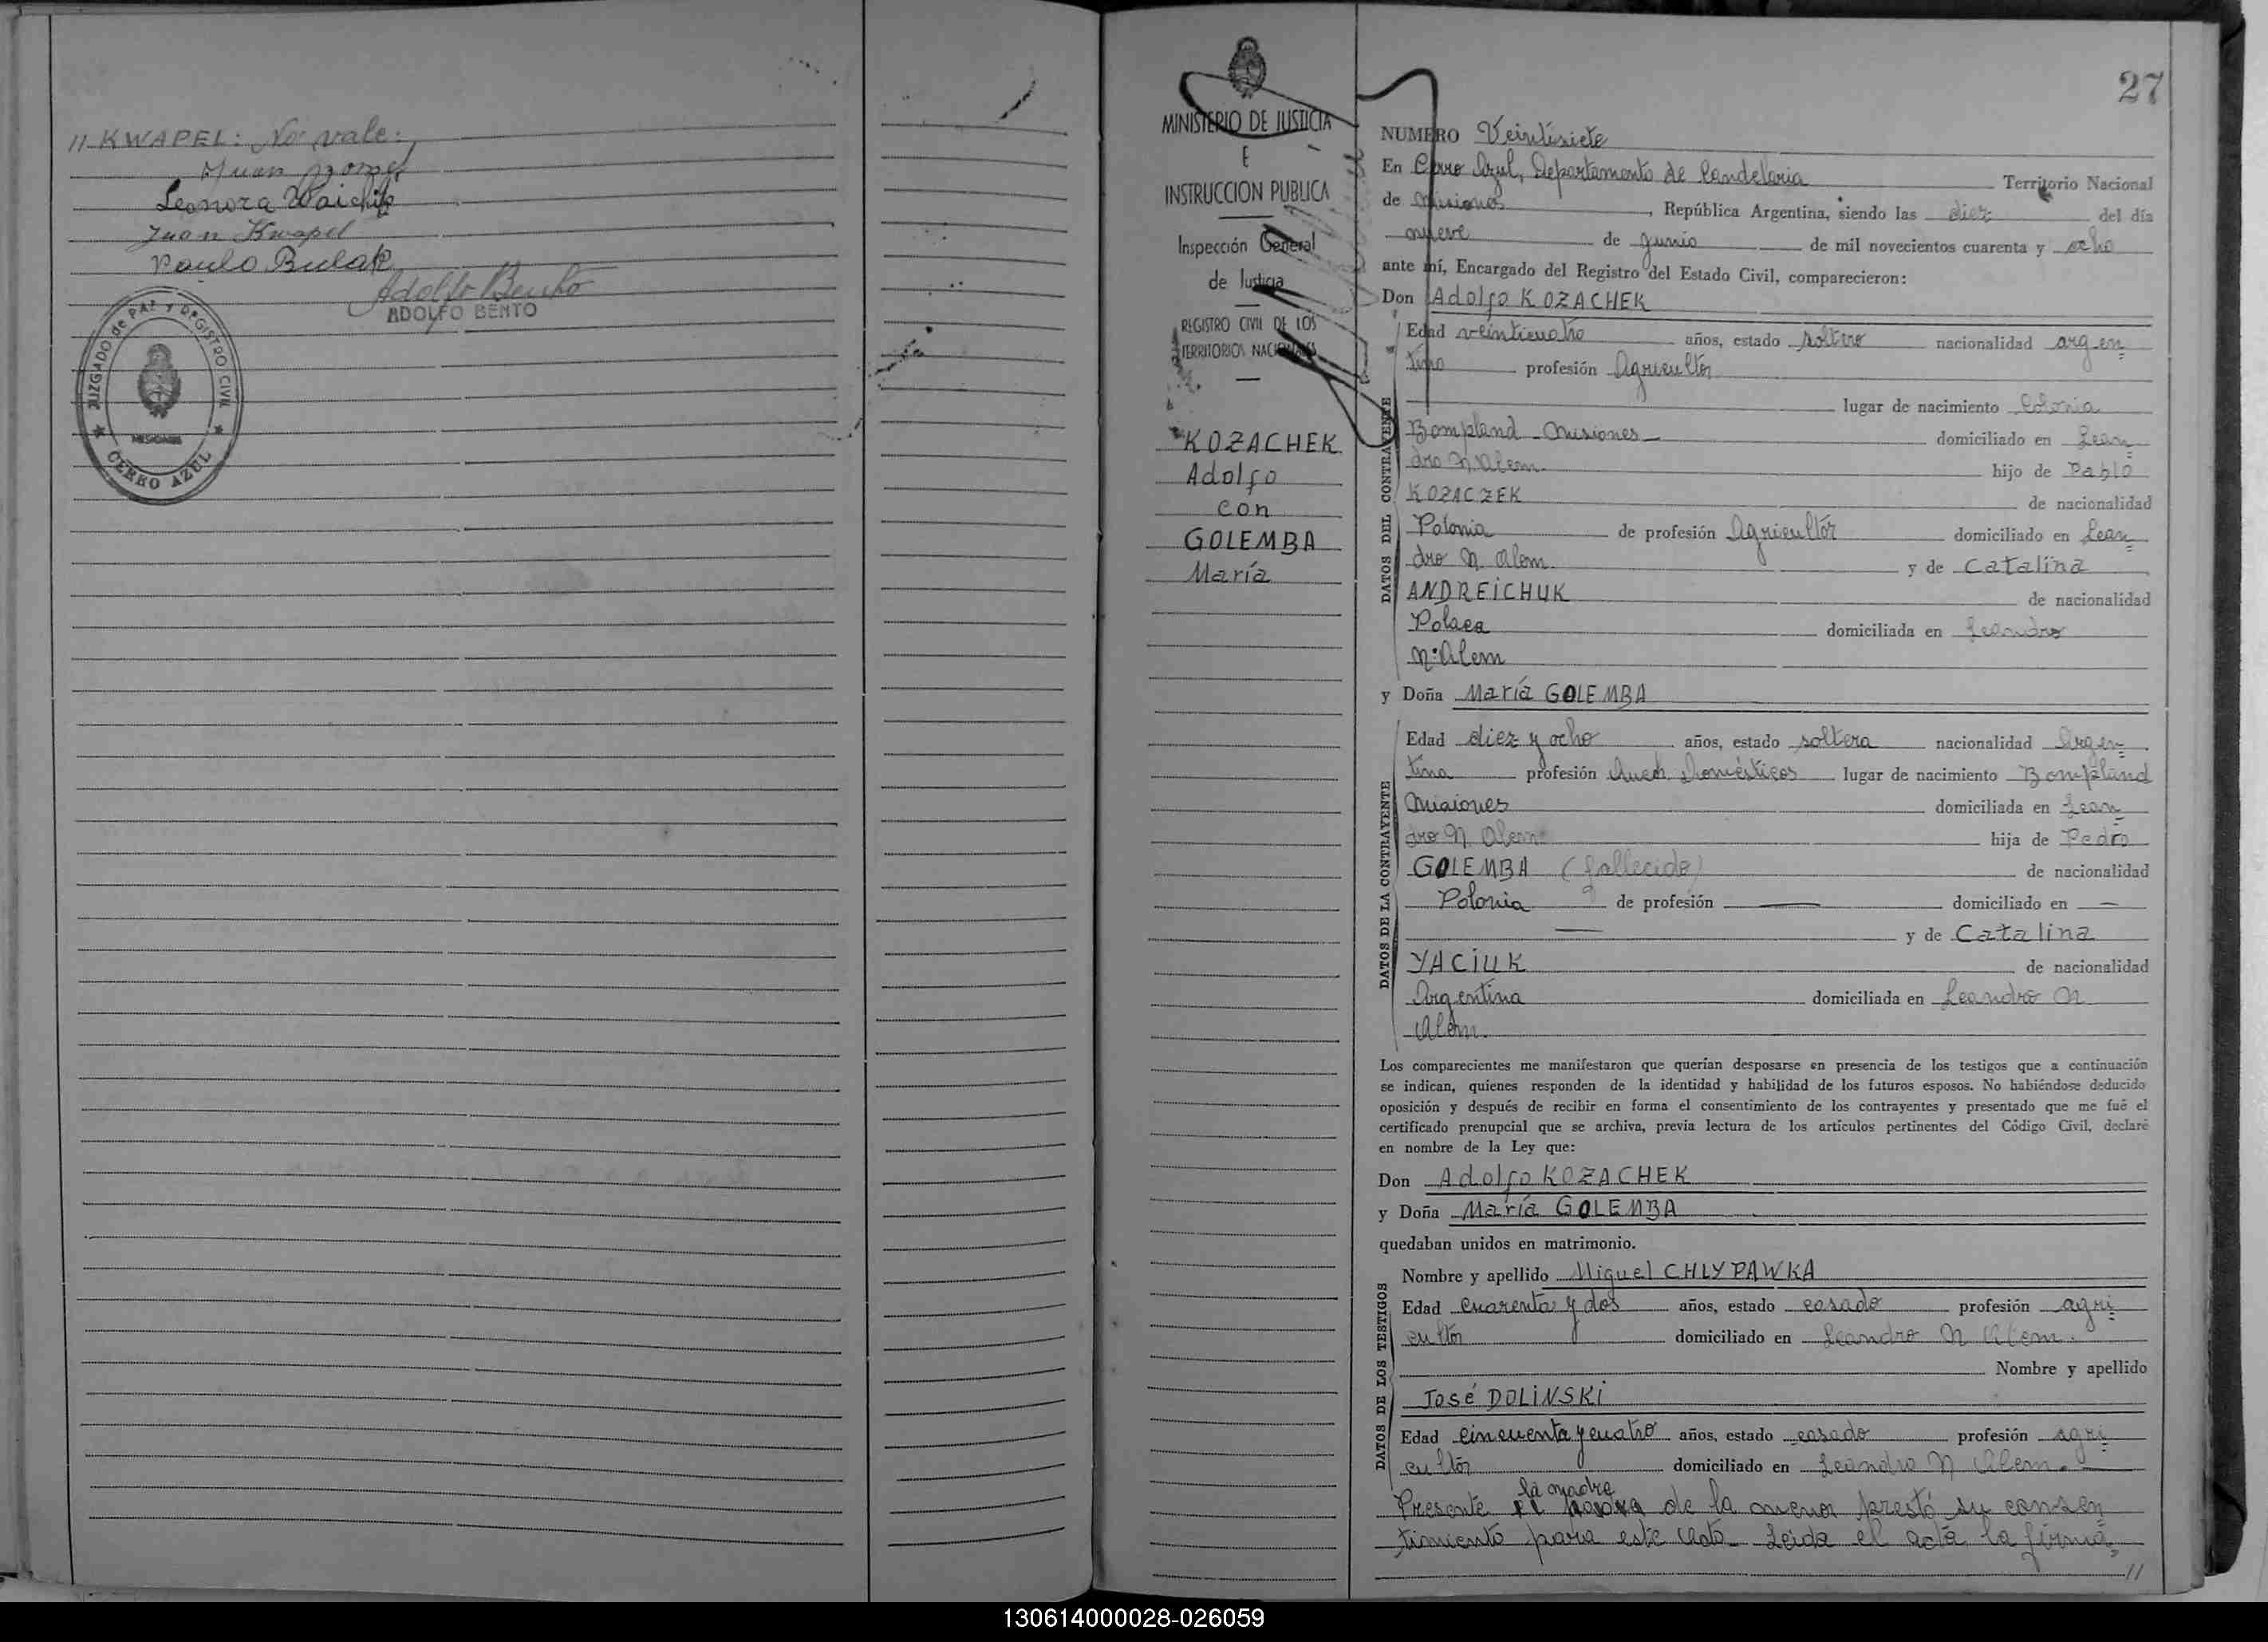 // KWAPEL: No vale:
Juan
Leonora
Juan Kwapel
Paulo Bulak
Adolfo Bento
ADOLFO BENTO
JUZGADO de PAZ Y REGISTRO CIVIL
MISIONES
CERRO AZUL
MINISTERIO DE JUSTICIA
E
INSTRUCCION PUBLICA
Inspección General
de Justicia
REGISTRO CIVIL DE LOS
TERRITORIOS NACIONALES
KOZACHEK
Adolfo
con
GOLEMBA
María
27
NUMERO Veintisiete
En Cerro Azul, Departamento de Candelaria Territorio Nacional
de Misiones, República Argentina, siendo las diez del día
nueve de junio de mil novecientos cuarenta y ocho
ante mí, Encargado del Registro del Estado Civil, comparecieron:
Don Adolfo KOZACHEK
DATOS DEL CONTRAYENTE
Edad veinticuatro años, estado soltero nacionalidad argen=
tino profesión Agricultor
lugar de nacimiento Colonia
Bompland - Misiones - domiciliado en Lean=
dro N. Alem. hijo de Pablo
KOZACZEK de nacionalidad
Polonia de profesión Agricultor domiciliado en Lean=
dro N. Alem. y de Catalina
ANDREICHUK de nacionalidad
Polaca domiciliada en Leandro
N. Alem
y Doña María GOLEMBA
DATOS DE LA CONTRAYENTE
Edad diez y ocho años, estado soltera nacionalidad Argen=
tina profesión Queh. Domésticos lugar de nacimiento Bompland
Misiones domiciliada en Lean=
dro N. Alem hija de Pedro
GOLEMBA (fallecido) de nacionalidad
Polonia de profesión — domiciliado en —
— y de Catalina
YACIUK de nacionalidad
Argentina domiciliada en Leandro N
Alem.
Los comparecientes me manifestaron que querían desposarse en presencia de los testigos que a continuación
se indican, quienes responden de la identidad y habilidad de los futuros esposos. No habiéndose deducido
oposición y después de recibir en forma el consentimiento de los contrayentes y presentado que me fué el
certificado prenupcial que se archiva, previa lectura de los artículos pertinentes del Código Civil, declaré
en nombre de la Ley que:
Don Adolfo KOZACHEK
y Doña María GOLEMBA
quedaban unidos en matrimonio.
DATOS DE LOS TESTIGOS
Nombre y apellido Miguel CHLYPAWKA
Edad cuarenta y dos años, estado casado profesión agri=
cultor domiciliado en Leandro N Alem.
Nombre y apellido
José DOLINSKI
Edad cincuenta y cuatro años, estado casado profesión agri=
cultor domiciliado en Leandro N Alem. -
la madre
Presente de la menor prestó su consen=
timiento para este Acto - Leída el acta la firma=
//
130614000028-026059